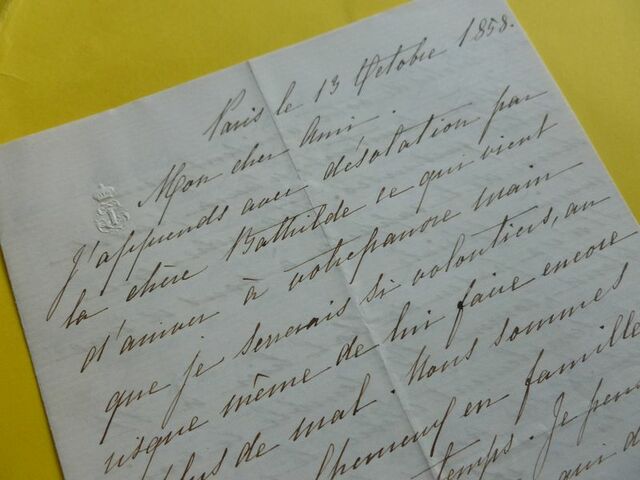 Paris le 13 Octobre 1858.
Mon cher Ami.
J'apprends avec désolation par
la chère Bathilde ce qui vient
d'arriver à votre pauvre main
que je serrerais si volontiers, au
risque même de lui faire encore
plus de mal. Nous sommes
en famille
temps. Je pense
qui d